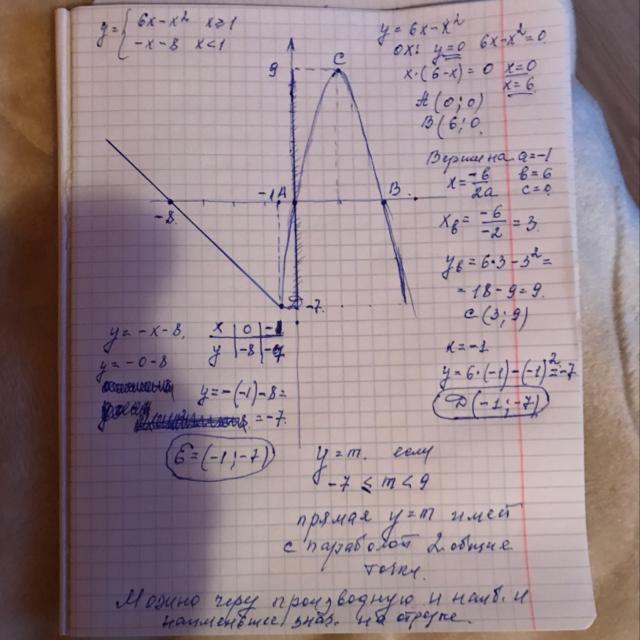 y = { 6x - x² x ≥ 1
-x - 8 x < 1
y = 6x - x²
ox: y = 0 6x - x² = 0
x·(6 - x) = 0 x = 0
x = 6.
A(0; 0)
B(6; 0
Вершина a = -1
x = -6/2a b = 6
c = 0
xв = -6/-2 = 3.
yв = 6·3 - 3² =
= 18 - 9 = 9.
C(3; 9)
x = -1
y = 6·(-1) - (-1)² = -7
D(-1; -7)
9
C
-8
-1
A
B
D
-7
y = -x - 8.
x | 0 | -1
y | -8 | -7
y = -0 - 8
y = -(-1) - 8 =
= -7.
E = (-1; -7)
y = m. если
-7 ≤ m < 9
прямая y = m имеет
с параболой 2 общие
точки.
Можно через производную и наиб. и
наименьшее знач. на отрезке.